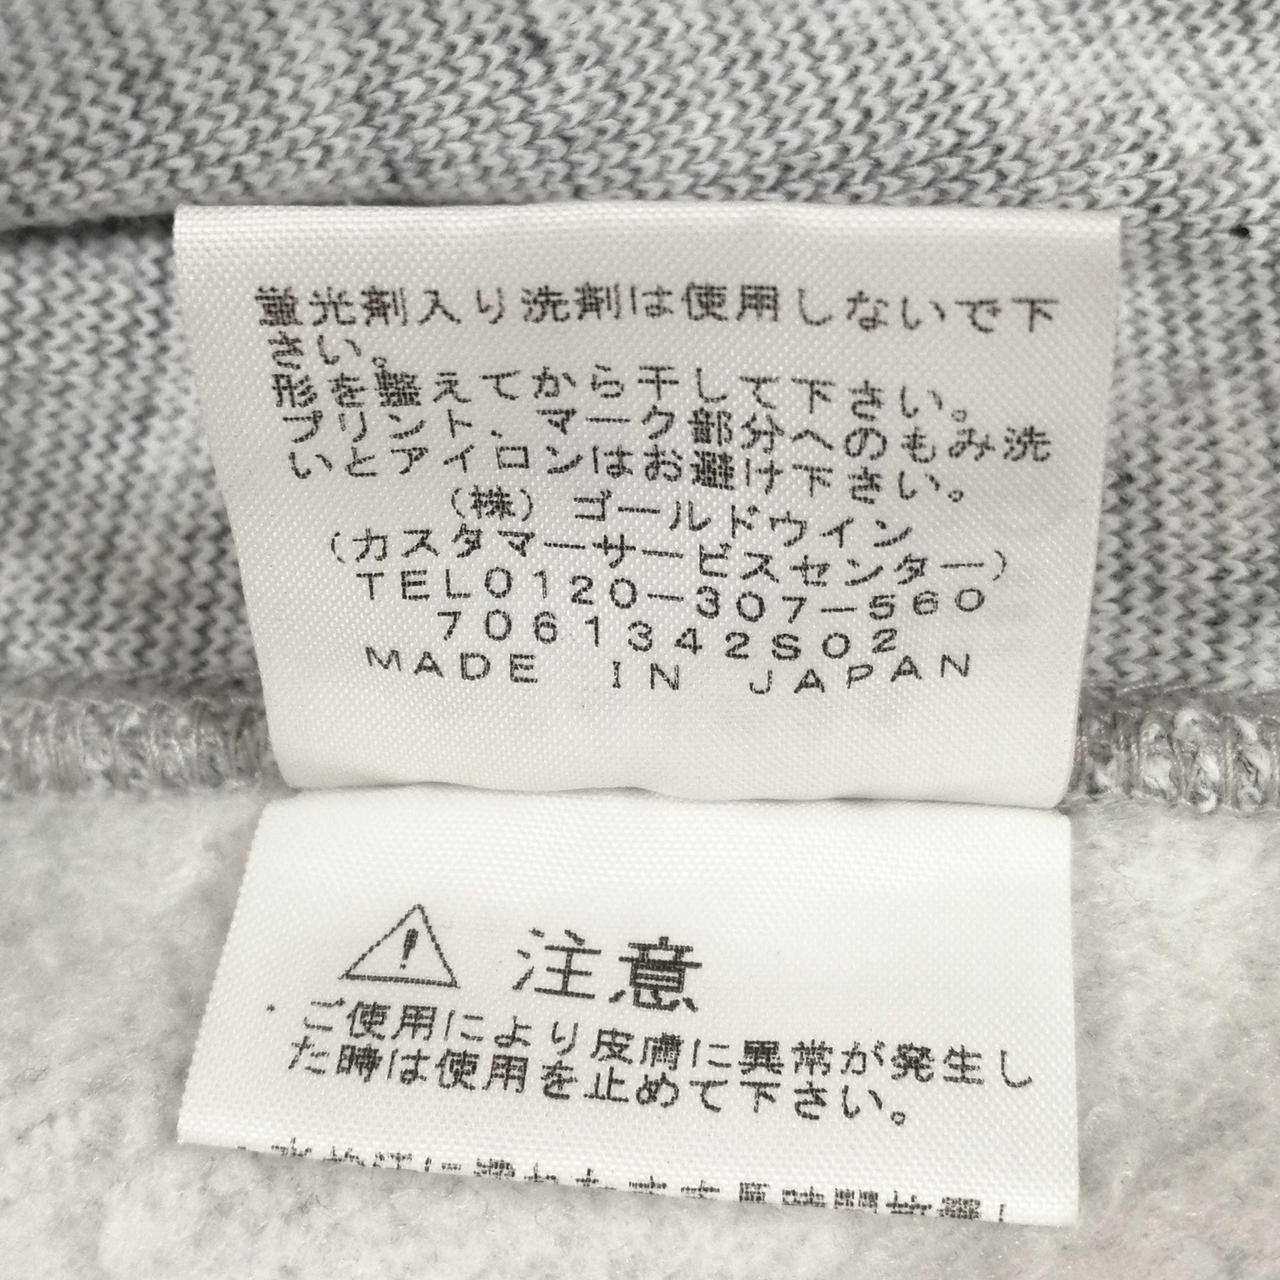 蛍光剤入り洗剤は使用しないで下
さい。
形を整えてから干して下さい。
プリント、マーク部分へのもみ洗
いとアイロンはお避け下さい。
(株)ゴールドウイン
(カスタマーサービスセンター)
TEL0120-307-560
7061342S02
MADE IN JAPAN
注意
・ご使用により皮膚に異常が発生し
た時は使用を止めて下さい。